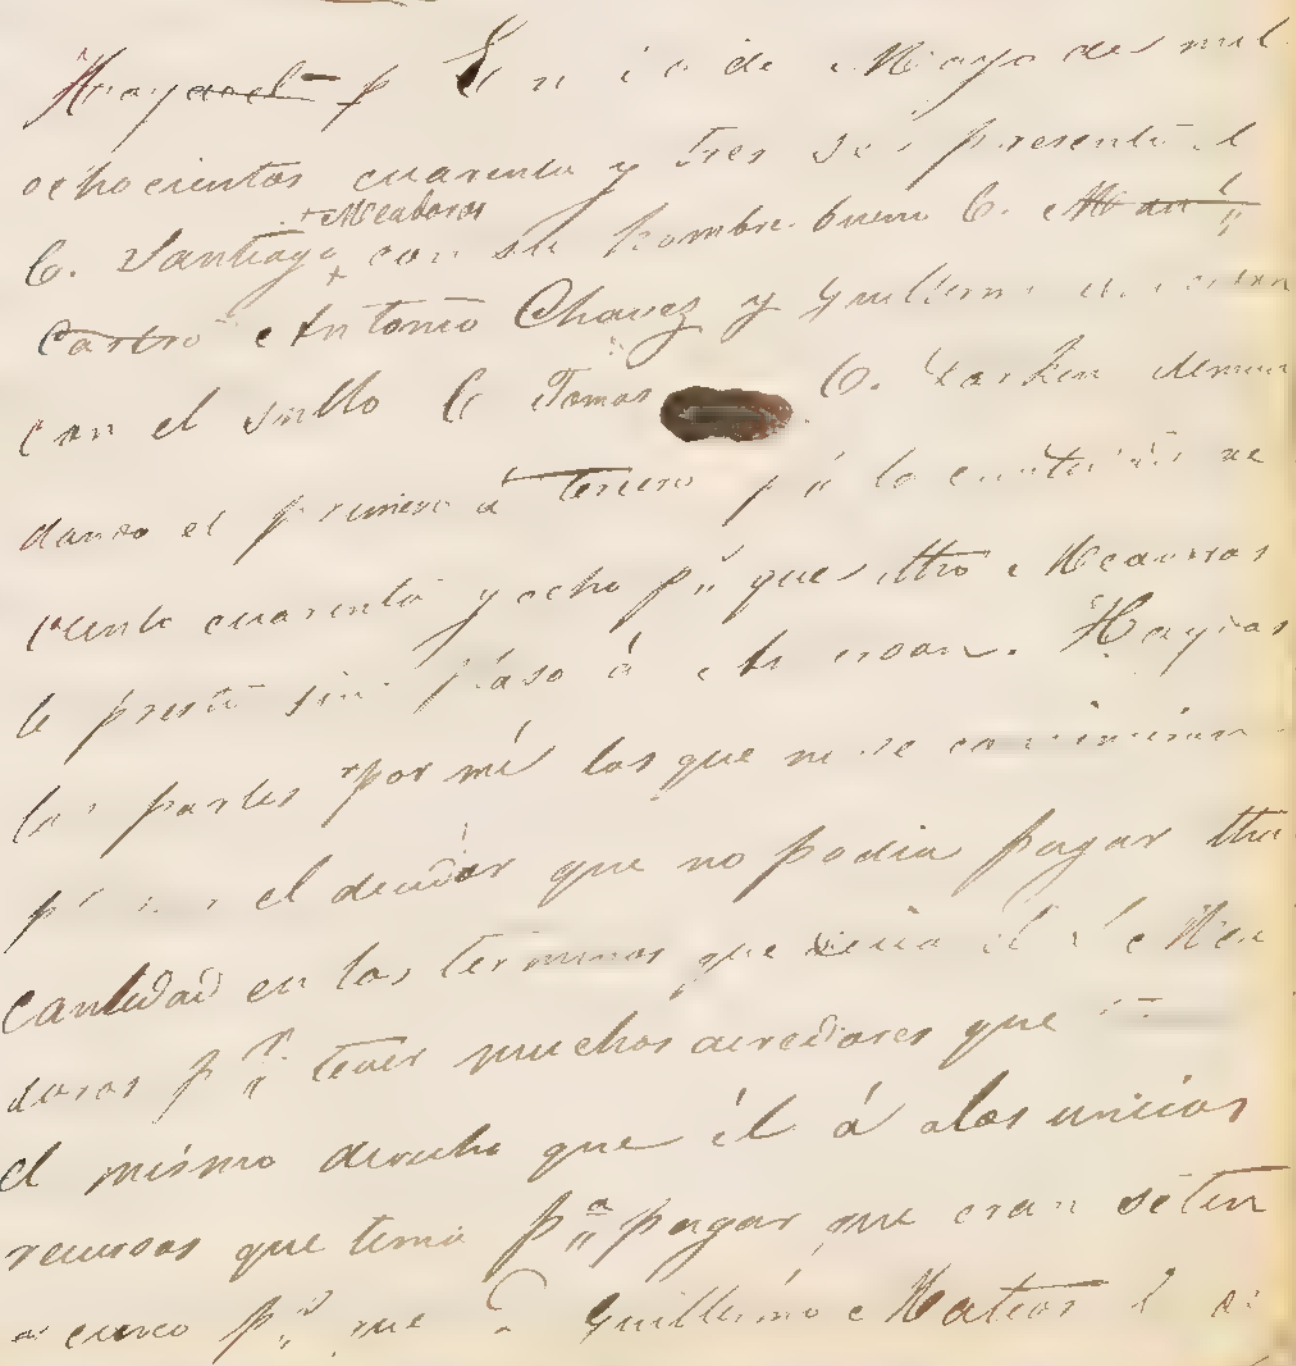 En 10 de Mayo de mil
ochocientos cuarenta y tres se presentó el
Meadores
C. Santiago con su hombre bueno C. Man.l
Castro Antonio Chavez y Guillermo
con el sullo C Tomas O. Larken deman
dando el primero á tercero pr la cantidad de
ciento cuarenta y ocho ps que dho Meadores
le prestó sin plaso á
las partes por mi los que no se convinieron
el deudor que no podia pagar dha
cantidad en los terminos que queria el Mea
dores pr tener muchos acredores que
el mismo derecho que él á alos unicos
recursos que tenia pa pagar que eran seten
cinco ps que Guillermo Matios